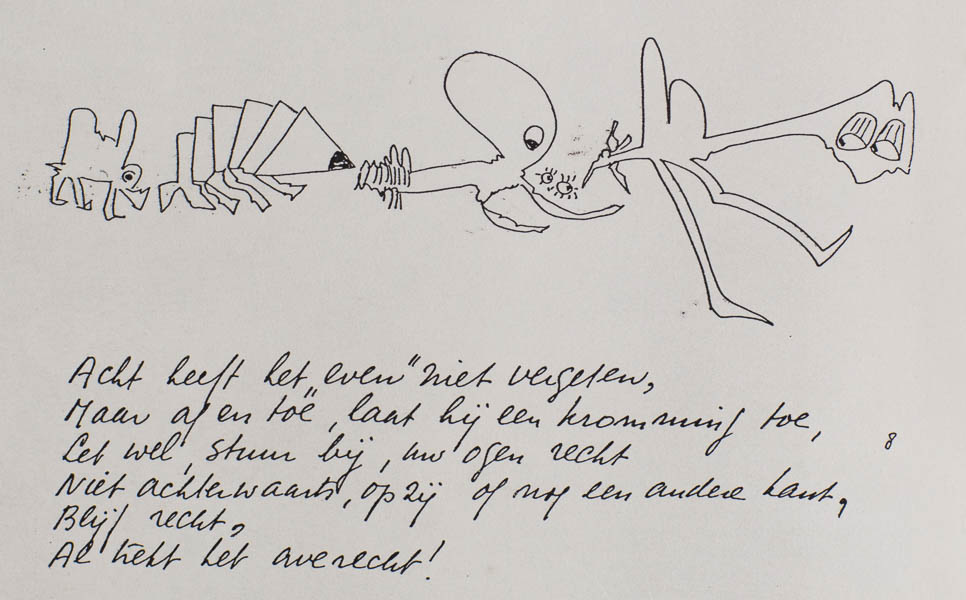 Acht heeft het „even” niet vergeten,
Maar af en toe, laat hij een kromming toe,
Let wel, stuur bij, uw ogen recht
8
Niet achterwaarts, opzij of nog een andere kant,
Blijf recht,
Al trekt het averecht!